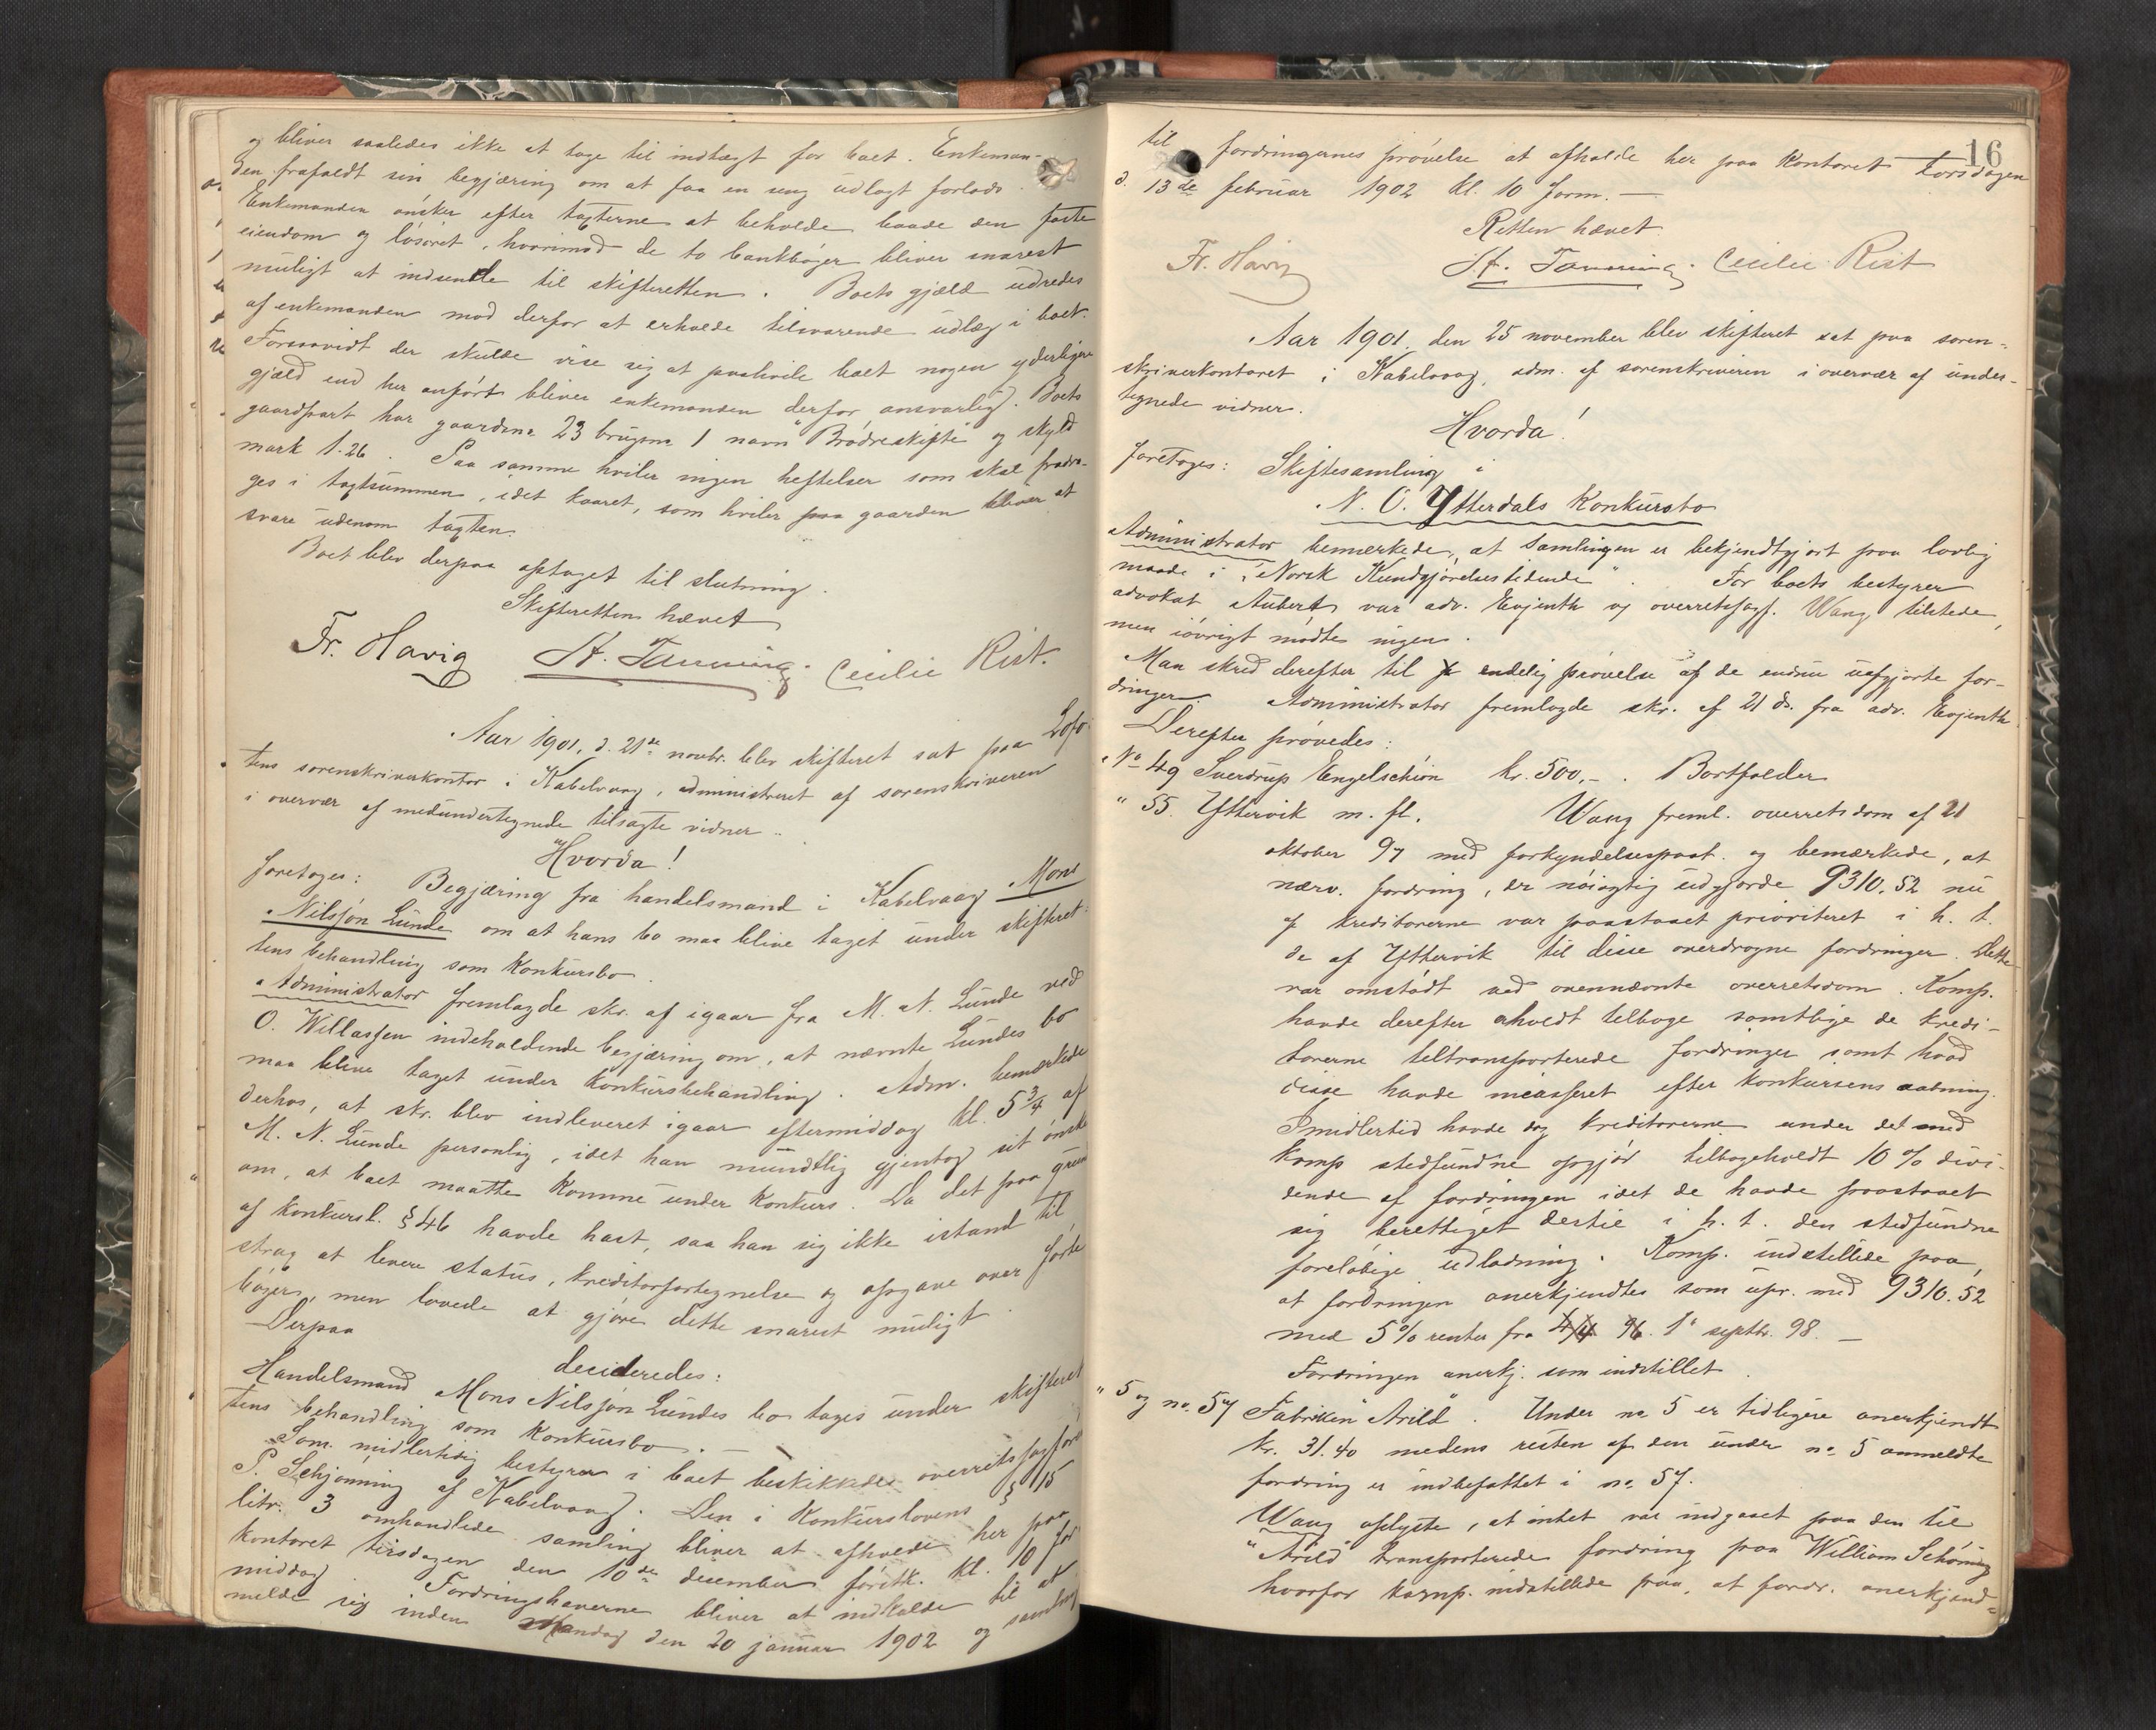 og bliver saaledes ikke at tage til indtægt for boet. Enkeman-
den frafaldt sin begjæring om at faa en seng udlagt forlods.
Enkemanden ønsker efter taxterne at beholde baade den faste
eiendom og løsøret, hvorimod de to bankbøger bliver snarest
muligt at indsende til skifteretten. Boets gjæld udredes
af enkemanden mod derfor at erholde tilsvarende udlæg i boet.
Forsaavidt der skulde vise sig at paahvile boet nogen yderligere
gjæld end her anført bliver enkemanden derfor ansvarlig. Boets
gaardpart har gaardsno 23 brugsno 1 navn "Brødreskifte" og skyld
mark 1.26. Paa samme hviler ingen heftelser som skal fradra-
ges i taxtsummen, idet kaaret, som hviler paa gaarden bliver at
svare udenom taxten.
Boet blev derpaa optaget til slutning.
Skifteretten hævet
Fr. Havig St. Tanning. Cecilie Rist.
Aar 1901, d. 21de novbr. blev skifteret sat paa Lofo-
tens sorenskriverkontor i Kabelvaag, administreret af sorenskriveren
i overvær af medundertegnede tilsagte vidner.
Hvorda!
foretoges: Begjæring fra handelsmand i Kabelvaag Mons
Nilssøn Lunde om at hans bo maa blive taget under skifteret-
tens behandling som konkursbo.
Administrator fremlagde skr. af igaar fra M. N. Lunde ved
O. Willassen indeholdende begjæring om, at nævnte Lundes bo
maa blive taget under konkursbehandling. Adm. bemærkede
derhos, at skr. blev indleveret igaar eftermiddag kl. 5 3/4 af
M. N. Lunde personlig, idet han mundtlig gjentog sit ønske
om, at boet maatte komme under konkurs. Da det paa grund
af konkursl. § 46 havde hast, saa han sig ikke istand til
strax at levere status, kreditorfortegnelse og opgave over førte
bøger, men lovede at gjøre dette snarest muligt.
Derpaa
decideredes:
Handelsmand Mons Nilssøn Lundes bo tages under skifteret
tens behandling som konkursbo.
Som midlertidig bestyrer i boet beskikkedes overretssagfører
P. Schjønning af Kabelvaag. Den i Konkurslovens § 15
litr. 3 omhandlede samling bliver at afholde her paa
kontoret tirsdagen den 10de december førstk. kl. 10 for
middag. Fordringshaverne bliver at indkalde til at
melde sig inden Mandag den 20 januar 1902 og samling
16
til fordringernes prøvelse at afholde her paa kontoret torsdagen
d. 13de februar 1902 kl. 10 form. —
Retten hævet
Fr. Havig St. Tanning. Cecilie Rist
Aar 1901. den 25 november blev skifteret sat paa soren-
skriverkontoret i Kabelvaag, adm. af sorenskriveren i overvær af under-
tegnede vidner.
Hvorda!
foretoges: Skiftesamling i
N. O. Ytterdals Konkursbo
Administrator bemærkede, at samlingen er bekjendtgjort paa lovlig
maade i "Norsk Kundgjørelsestidende". For boets bestyrer
advokat Aubert var adv. Evjenth og overretssagf. Wang tilstede,
men iøvrigt mødte ingen.
Man skred derefter til endelig prøvelse af de endnu uafgjorte for-
dringer. Administrator fremlagde skr. af 21 ds. fra adv. Evjenth.
Derefter prøvedes:
No 49 Sverdrup Engelschiøn kr. 500,-. Bortfalder
" 55. Yttervik m. fl. Wang freml. overretsdom af 21
oktober 97 med forkyndelsespaat. og bemærkede, at
nærv. fordring, der nøiagtig udgjorde 9310.52 nu
af kreditorerne var paastaaet prioriteret i h. t.
de af Yttervik til disse overdragne fordringer. Dette
var omstødt ved ovennævnte overretsdom. Komp.
havde derefter erholdt tilbage samtlige de kredi-
torerne tiltransporterede fordringer samt hvad
disse havde incasseret efter konkursens aabning.
Imidlertid havde dog kreditorerne under det med
komp stedfundne opgjør tilbageholdt 10 % divi-
dende af fordringen idet de havde paastaaet
sig berettiget dertil i h. t. den stedfundne
foreløbige udlodning. Komp. indstillede paa,
at fordringen anerkjendtes som upr. med 9310.52
med 5% renter fra 4/4 96. 1' septbr. 98. —
Fordringen anerkj. som indstillet.
" 5 og no. 57 Fabriken "Arild". Under no 5 er tidligere anerkjendt
kr. 31.40 medens resten af den under no 5 anmeldte
fordring er indbefattet i no. 57.
Wang oplyste, at intet var indgaaet paa den til
"Arild" transporterede fordring paa William Schøning
hvorfor komp. indstillede paa, at fordr. anerkjend-